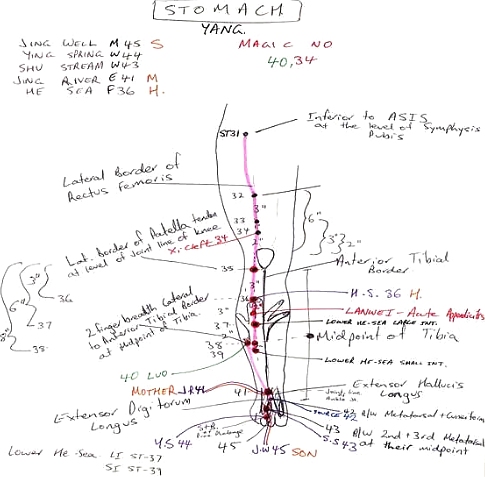 STOMACH
YANG.
JING WELL M 45 S
YING SPRING W 44
SHU STREAM W 43
JING RIVER E 41 M
HE SEA F 36 H.
MAGIC NO
40,34
ST31
Inferior to ASIS
at the level of Symphysis
Pubis
Lateral Border of
Rectus Femoris
32
3"
33
34
2"
6"
3"
2"
Lat. Border of Patella tendon
at level of Joint line of knee
Xi-cleft 34
35
Anterior Tibial
Border
3"
6"
8"
36
37
38
3"
36
H.S. 36 H.
LANWEI - Acute Appendicitis
LOWER HE-SEA LARGE INT.
2 fingerbreadth Lateral
to Anterior Tibial Border
at Midpoint of Tibia.
3"
37
2"
38
39
Midpoint of Tibia
LOWER HE-SEA SMALL INT.
40 LUO
MOTHER J.R 41
41
Extensor Hallucis
Longus
Joint line
Ankle
Extensor Digitorum
Longus
SOURCE 42 B/w Metatarsal + Cuneiform
43 B/w 2nd + 3rd Metatarsal
S.S 43 at their midpoint
Y.S 44
45
J.W 45 SON
Lower He-Sea LI ST-37
SI ST-39